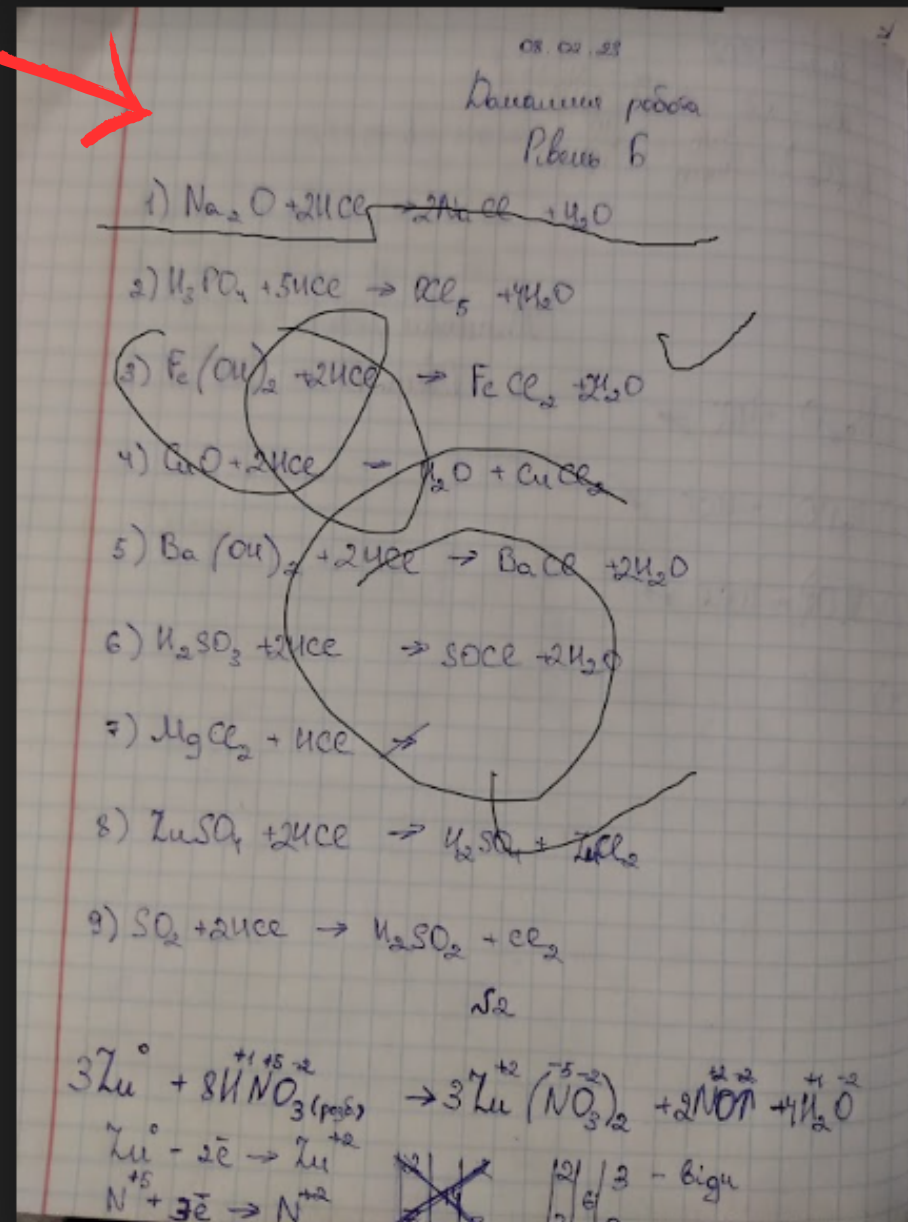 08.02.23
Домашня робота
Рівень Б
1) Na₂O + 2HCl → 2NaCl + H₂O
2) H₃PO₄ + 5HCl → PCl₅ + 4H₂O
3) Fe(OH)₂ + 2HCl → FeCl₂ + 2H₂O
4) CuO + 2HCl – H₂O + CuCl₂
5) Ba(OH)₂ + 2HCl → BaCl + 2H₂O
6) H₂SO₃ + 2HCl → SOCl + 2H₂O
7) MgCl₂ + HCl ↛
8) ZnSO₄ + 2HCl → H₂SO₄ + ZnCl₂
9) SO₂ + 2HCl → H₂SO₂ + Cl₂
№2
3Zn⁰ + 8H⁺¹N⁺⁵O⁻²₃(розб) → 3Zn⁺²(N⁻⁵O⁻²₃)₂ + 2N⁺²O⁻²↑ + 4H⁺¹₂O⁻²
Zn⁰ - 2ē → Zn⁺² |2| | 3 - відн
N⁺⁵ + 3ē → N⁺² 6